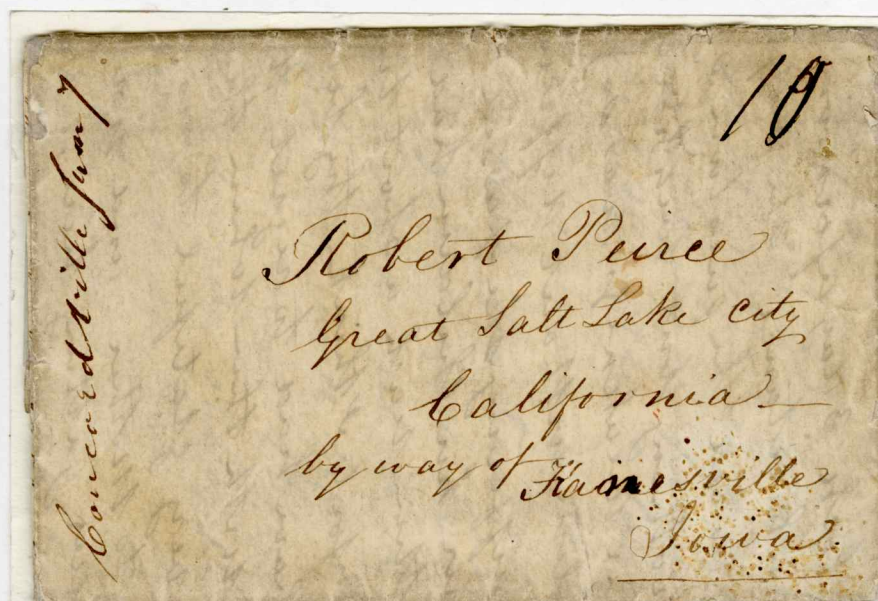 10
Concordville Jany 7
Robert Peirce
Great Salt Lake city
California
by way of Kanesville
Iowa